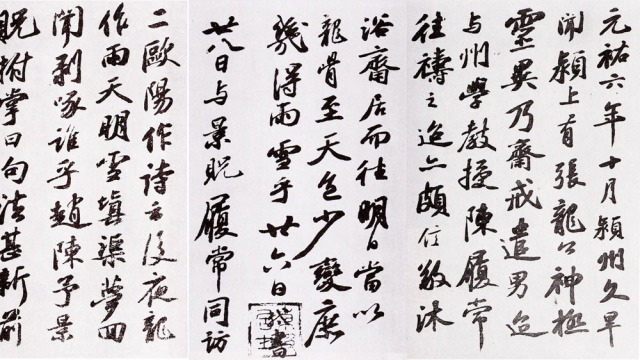 元祐六年十月潁州久旱
聞潁上有張龍公神極
靈異乃齋戒遣男迨
与州學教授陳履常
往禱之迨亦頗信敬沐
浴齋居而往明日當以
龍骨至天色少變庶
幾得雨雪乎廿六日
廿八日与景貺履常同訪
二歐陽作詩云後夜龍
作雨天明雪填渠夢回
聞剥啄誰乎趙陳予景
貺拊掌曰句法甚新前